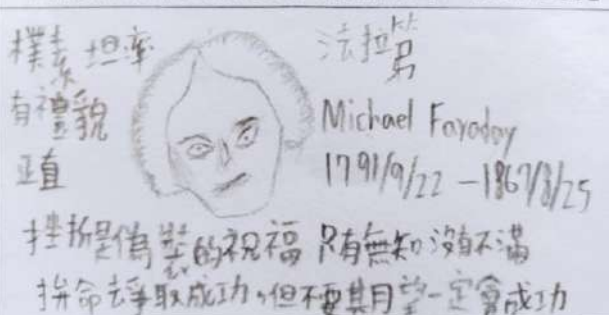 樸素 坦率
有禮貌
正直
法拉第
Michael Faraday
1791/9/22 - 1867/8/25
挫折是偽裝的祝福 只有無知 沒有不滿
拚命去爭取成功,但不要期望一定會成功